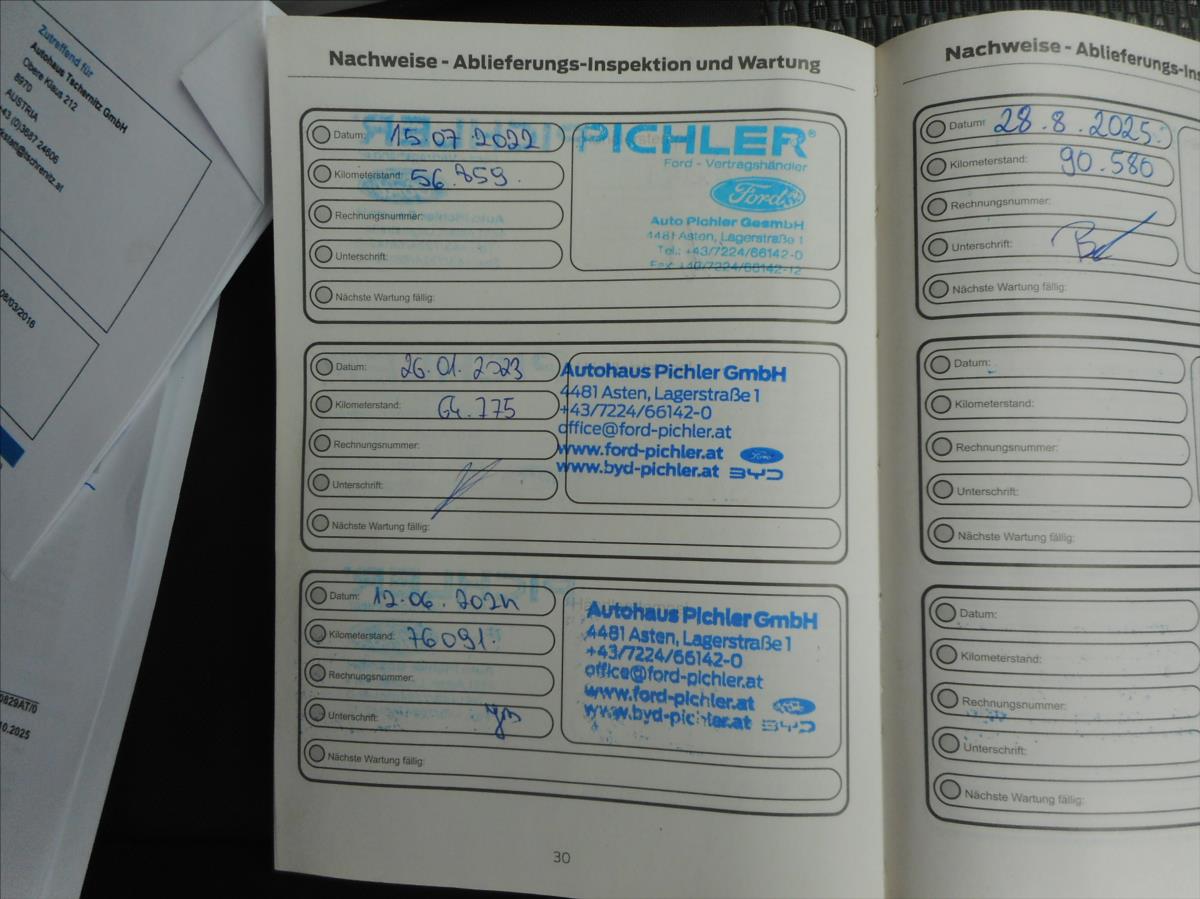 Zutreffend für
Autohaus Tschernitz GmbH
Obere Klaus 212
8970
AUSTRIA
+43 (0)3687 24606
08/03/2016
0829AT/0
10.2025
Nachweise - Ablieferungs-Inspektion und Wartung
Datum: 15.07.2022
Kilometerstand: 56.859.
Rechnungsnummer:
Unterschrift:
Nächste Wartung fällig:
PICHLER®
Ford - Vertragshändler
Ford
Auto Pichler GesmbH
4481 Asten, Lagerstraße 1
Tel.: +43/7224/66142-0
Fax: +43/7224/66142-12
Datum: 26.01.2023
Kilometerstand: 64.775
Rechnungsnummer:
Unterschrift:
Nächste Wartung fällig:
Autohaus Pichler GmbH
4481 Asten, Lagerstraße 1
+43/7224/66142-0
office@ford-pichler.at
www.ford-pichler.at Ford
www.byd-pichler.at BYD
Datum: 12.06.2024
Kilometerstand: 76091.
Rechnungsnummer:
Unterschrift:
Nächste Wartung fällig:
Autohaus Pichler GmbH
4481 Asten, Lagerstraße 1
+43/7224/66142-0
office@ford-pichler.at
www.ford-pichler.at Ford
www.byd-pichler.at BYD
30
Nachweise - Ablieferungs-Ins
Datum: 28.8.2025.
Kilometerstand: 90.580
Rechnungsnummer:
Unterschrift:
Nächste Wartung fällig:
Datum:
Kilometerstand:
Rechnungsnummer:
Unterschrift:
Nächste Wartung fällig:
Datum:
Kilometerstand:
Rechnungsnummer:
Unterschrift:
Nächste Wartung fällig: